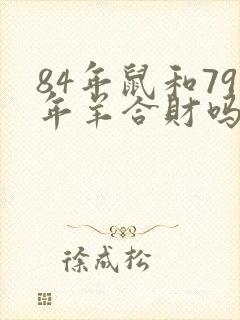 84年鼠和79
年羊合財吗
徐成松